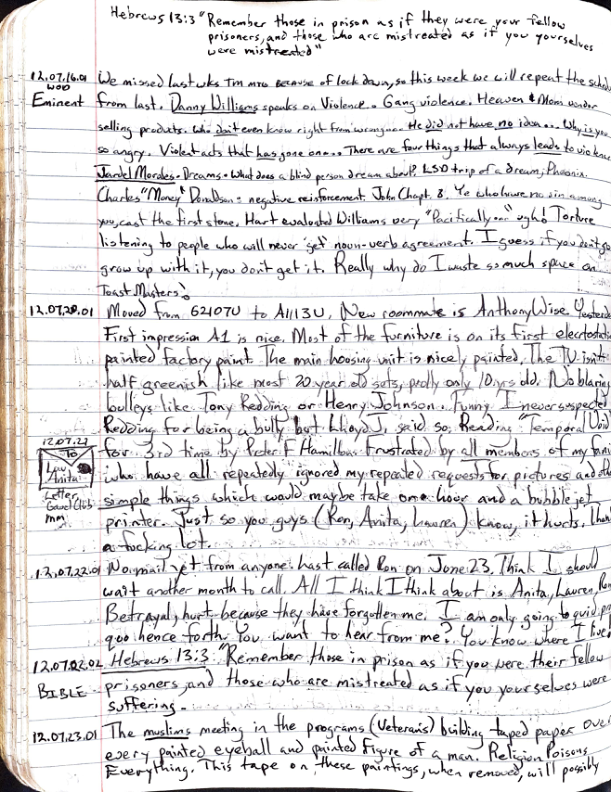 Hebrews 13:3 "Remember those in prison as if they were your fellow
prisoners, and those who are mistreated as if you yourselves
were mistreated"
12.07.16.01 We missed last wks Tm mtg because of lock down, so this week we will repeat the
WOD
Eminent from last. Danny Williams speaks on Violence. Gang violence. Heaven & Mom
selling products. Who don't even know right from wrong. He did not have no idea... Why is
so angry. Violent acts that has gone on... There are four things that always leads to
Jardel Morales. Dreams. What does a blind person dream about? LSD trip of a dream, Phoenix.
Charles "Money" Donaldson = negative reinforcement. John Chapt. 8. Ye who have no sin among
you, cast the first stone. Hart evaluated Williams very "Pacifically..." ugh! Torture
listening to people who will never 'get' noun-verb agreement. I guess if you don't
grow up with it, you don't get it. Really why do I waste so much space on
Toast Masters?
12.07.20.01 Moved from 62107U to A1113U. New roommate is Anthony Wise. Yesterday
First impression A1 is nice. Most of the furniture is on its first electrostatic
painted factory paint. The main housing unit is nicely painted. The TV isn't
half greenish like most 20 year old sets, prolly only 10 yrs old. No blaring
bulleys like Tony Redding or Henry Johnson. Funny I never suspected
Redding for being a bully but Lloyd J. said so. Reading Temporal Void
for 3rd time by Peter F Hamilton. Frustrated by all members of my family
who have all repeatedly ignored my repeated requests for pictures and other
simple things which would maybe take one hour and a bubble jet
printer. Just so you guys (Ron, Anita, Lauren) know, it hurts.
a fucking lot.
12.07.21
To
Law
Anita
Letter
Gavel Club
mm
12.07.22.01 No mail yet from anyone. Last called Ron on June 23. Think I should
wait another month to call. All I think I think about is Anita, Lauren, Ron
Betrayal, hurt because they have forgotten me. I am only going to quid pro
quo hence forth. You want to hear from me? You know where I live!
12.07.22.02 Hebrews 13:3 "Remember those in prison as if you were their fellow
BIBLE prisoners, and those who are mistreated as if you yourselves were
suffering.
12.07.23.01 The muslims meeting in the programs (Veterans) building taped paper over
every painted eyeball and painted figure of a man. Religion Poisons
Everything. This tape on these paintings, when removed, will possibly